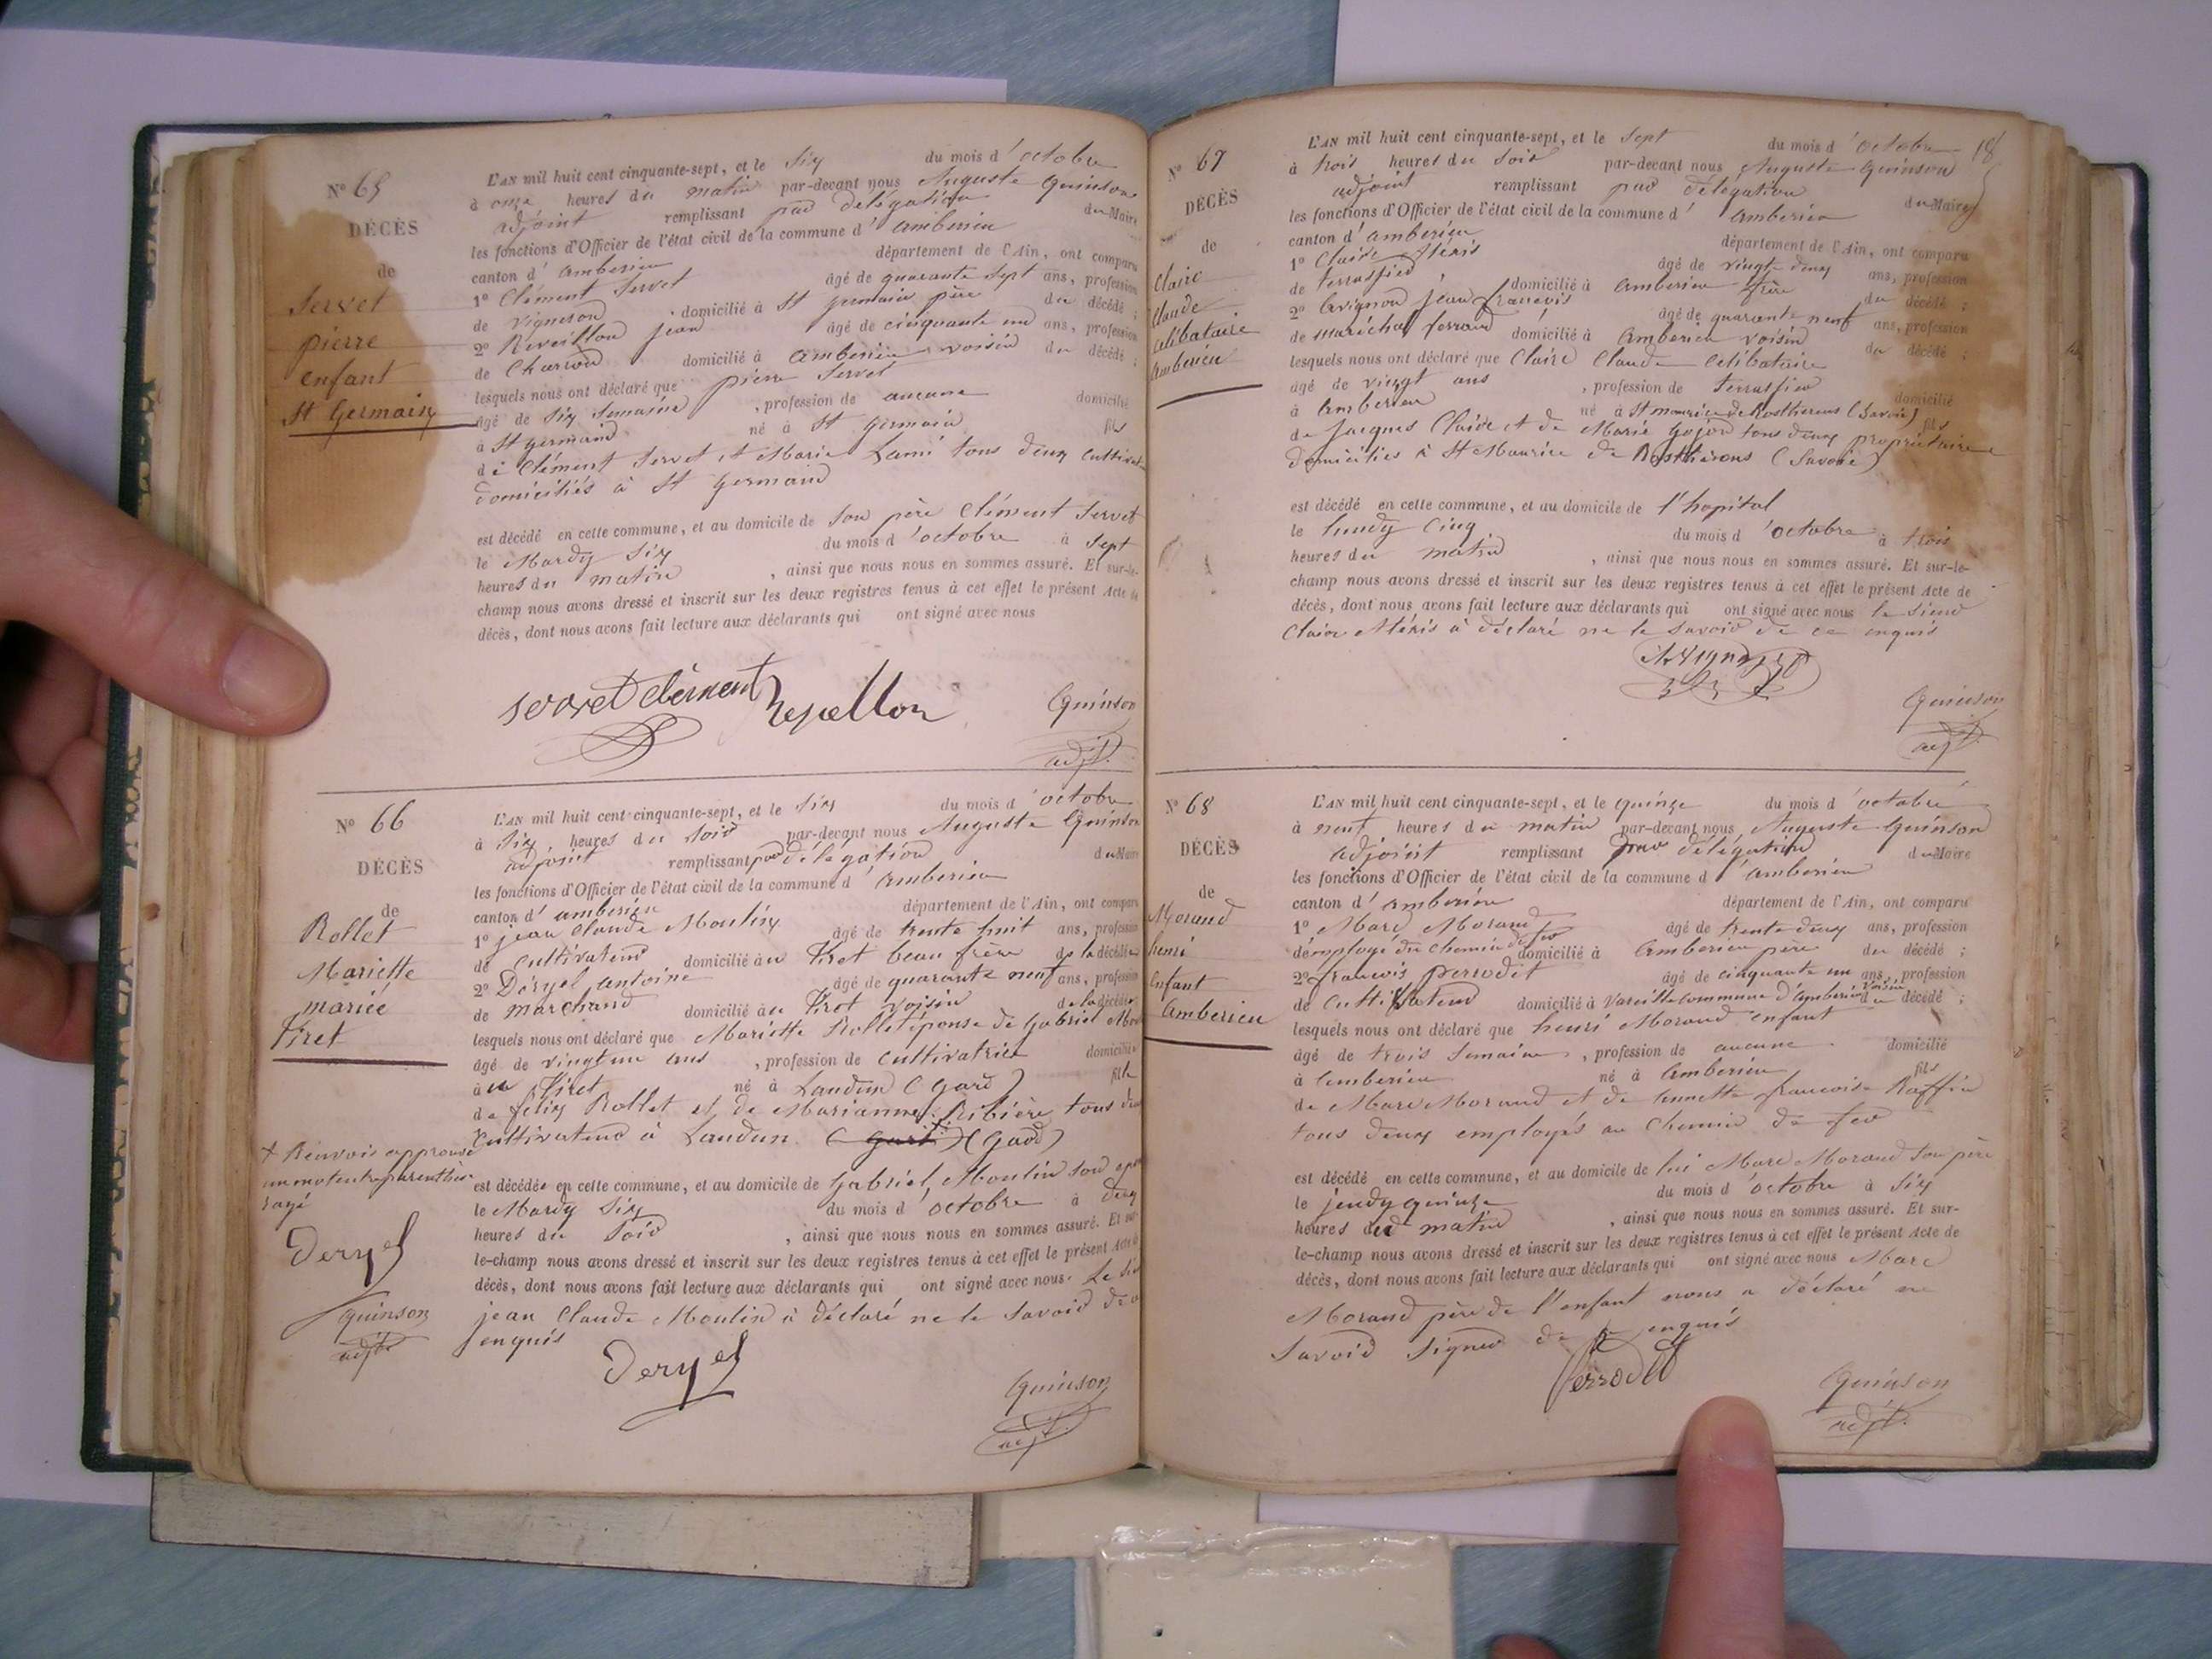 Nº 65
DÉCÈS
de
Servet
pierre
enfant
St Germain
L'AN mil huit cent cinquante-sept, et le Six du mois d'octobre
à onze heures du matin par-devant nous Auguste Quinson
adjoint remplissant par délégation du Maire
les fonctions d'Officier de l'état civil de la commune d'amberieu
canton d'amberieu département de l'Ain, ont comparu
1º Clément Servet âgé de quarante Sept ans, profession
de vigneron domicilié à St germain père du décédé ;
2º Reveillon jean âgé de cinquante un ans, profession
de Charron domicilié à amberieu voisin du décédé ;
lesquels nous ont déclaré que pierre Servet
âgé de Six Semaine, profession de aucune domicilié
à St germain né à St germain fils
de Clément Servet et Marie Lami tous deux Cultivat
domiciliés à St germain
est décédé en cette commune, et au domicile de Son père Clément Servet
le Mardy Six du mois d'octobre à Sept
heures du matin, ainsi que nous nous en sommes assuré. Et sur-le-
champ nous avons dressé et inscrit sur les deux registres tenus à cet effet le présent Acte de
décès, dont nous avons fait lecture aux déclarants qui ont signé avec nous
servet clément
Quinson
adjt.
Nº 66
DÉCÈS
de
Rollet
Mariette
mariée
Tiret
L'AN mil huit cent cinquante-sept, et le Six du mois d'octobre
à Six, heures du soir par-devant nous Auguste Quinson
adjoint remplissant par délégation du Maire
les fonctions d'Officier de l'état civil de la commune d'amberieu
canton d'amberieu département de l'Ain, ont comparu
1º jean Claude Moulin âgé de trente huit ans, profession
de Cultivateur domicilié au Tiret beau frère de la décédée
2º Déryel antoine âgé de quarante neuf ans, profession
de marchand domicilié au Tiret voisin de la décédée
lesquels nous ont déclaré que Mariette Rollet épouse de Gabriel Mou
âgé de vingt un ans, profession de Cultivatrice domiciliée
à au Tiret né à Laudun (Gard) fille
de félix Rollet et de Marianne Ribière tous deux
Cultivateur à Laudun (Gard) (Gard)
+ Renvois approuvé
un mot entre parenthèse
rayé
Deryel
Quinson
adjt
est décédée en cette commune, et au domicile de Gabriel Moulin son épou
le Mardy Six du mois d'octobre à deux
heures du Soir, ainsi que nous nous en sommes assuré. Et sur-
le-champ nous avons dressé et inscrit sur les deux registres tenus à cet effet le présent Acte de
décès, dont nous avons fait lecture aux déclarants qui ont signé avec nous. Le Sieur
jean Claude Moulin à déclaré ne le Savoir de ce
enquis
Deryel
Quinson
adjt.
18
Nº 67
DÉCÈS
de
Claire
Claude
Célibataire
Amberieu
L'AN mil huit cent cinquante-sept, et le Sept du mois d'octobre
à trois heures du Soir par-devant nous Auguste Quinson
adjoint remplissant par délégation du Maire
les fonctions d'Officier de l'état civil de la commune d'amberieu
canton d'amberieu département de l'Ain, ont comparu
1º Claire Aléxis âgé de vingt deux ans, profession
de terrassier domicilié à amberieu frère du décédé ;
2º Lavignon jean françois âgé de quarante neuf ans, profession
de maréchal ferrand domicilié à Amberieu voisin du décédé ;
lesquels nous ont déclaré que Claire Claude Célibataire
âgé de vingt ans, profession de terrassier domicilié
à amberieu né à St maurice de Rostherens (Savoie) fils
de Jacques Claire et de Marie Gojon tous deux propriétaire
domiciliés à St Maurice de Rostherens (Savoie)
est décédé en cette commune, et au domicile de l'hopital
le lundy Cinq du mois d'octobre à trois
heures du matin, ainsi que nous nous en sommes assuré. Et sur-le-
champ nous avons dressé et inscrit sur les deux registres tenus à cet effet le présent Acte de
décès, dont nous avons fait lecture aux déclarants qui ont signé avec nous le Sieur
Claire Aléxis à déclaré ne le Savoir de ce enquis
Quinson
adjt.
Nº 68
DÉCÈS
de
Morand
henri
enfant
Amberieu
L'AN mil huit cent cinquante-sept, et le quinze du mois d'octobre
à neuf heures du matin par-devant nous Auguste Quinson
adjoint remplissant par délégation du Maire
les fonctions d'Officier de l'état civil de la commune d'amberieu
canton d'amberieu département de l'Ain, ont comparu
1º Marc Morand âgé de trente deux ans, profession
d'employé du Chemin de fer domicilié à amberieu père du décédé ;
2º françois perrodet âgé de cinquante un ans, profession
de Cultivateur domicilié à Vareille commune d'amberieu voisin du décédé ;
lesquels nous ont déclaré que henri Morand enfant
âgé de trois Semaine, profession de aucune domicilié
à amberieu né à amberieu fils
de Marc Morand et de annette françoise Raffin
tous deux employés au Chemin de fer
est décédé en cette commune, et au domicile de lui Marc Morand Son père
le jeudy quinze du mois d'octobre à Six
heures du matin, ainsi que nous nous en sommes assuré. Et sur-
le-champ nous avons dressé et inscrit sur les deux registres tenus à cet effet le présent Acte de
décès, dont nous avons fait lecture aux déclarants qui ont signé avec nous Marc
Morand père de l'enfant nous a déclaré ne
Savoir Signer de ce enquis
Perrodet
Quinson
adjt.